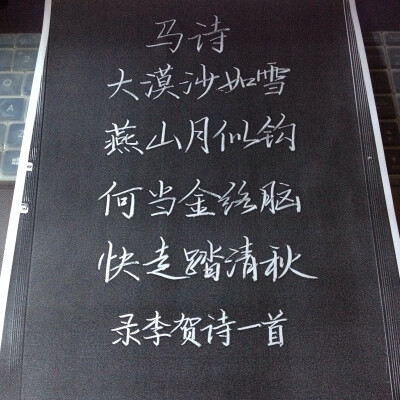 马诗
大漠沙如雪
燕山月似钩
何当金络脑
快走踏清秋
录李贺诗一首